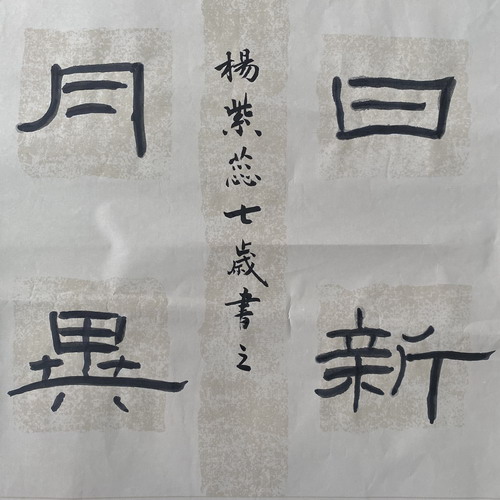 日新
月異
楊紫蕊七歲書之